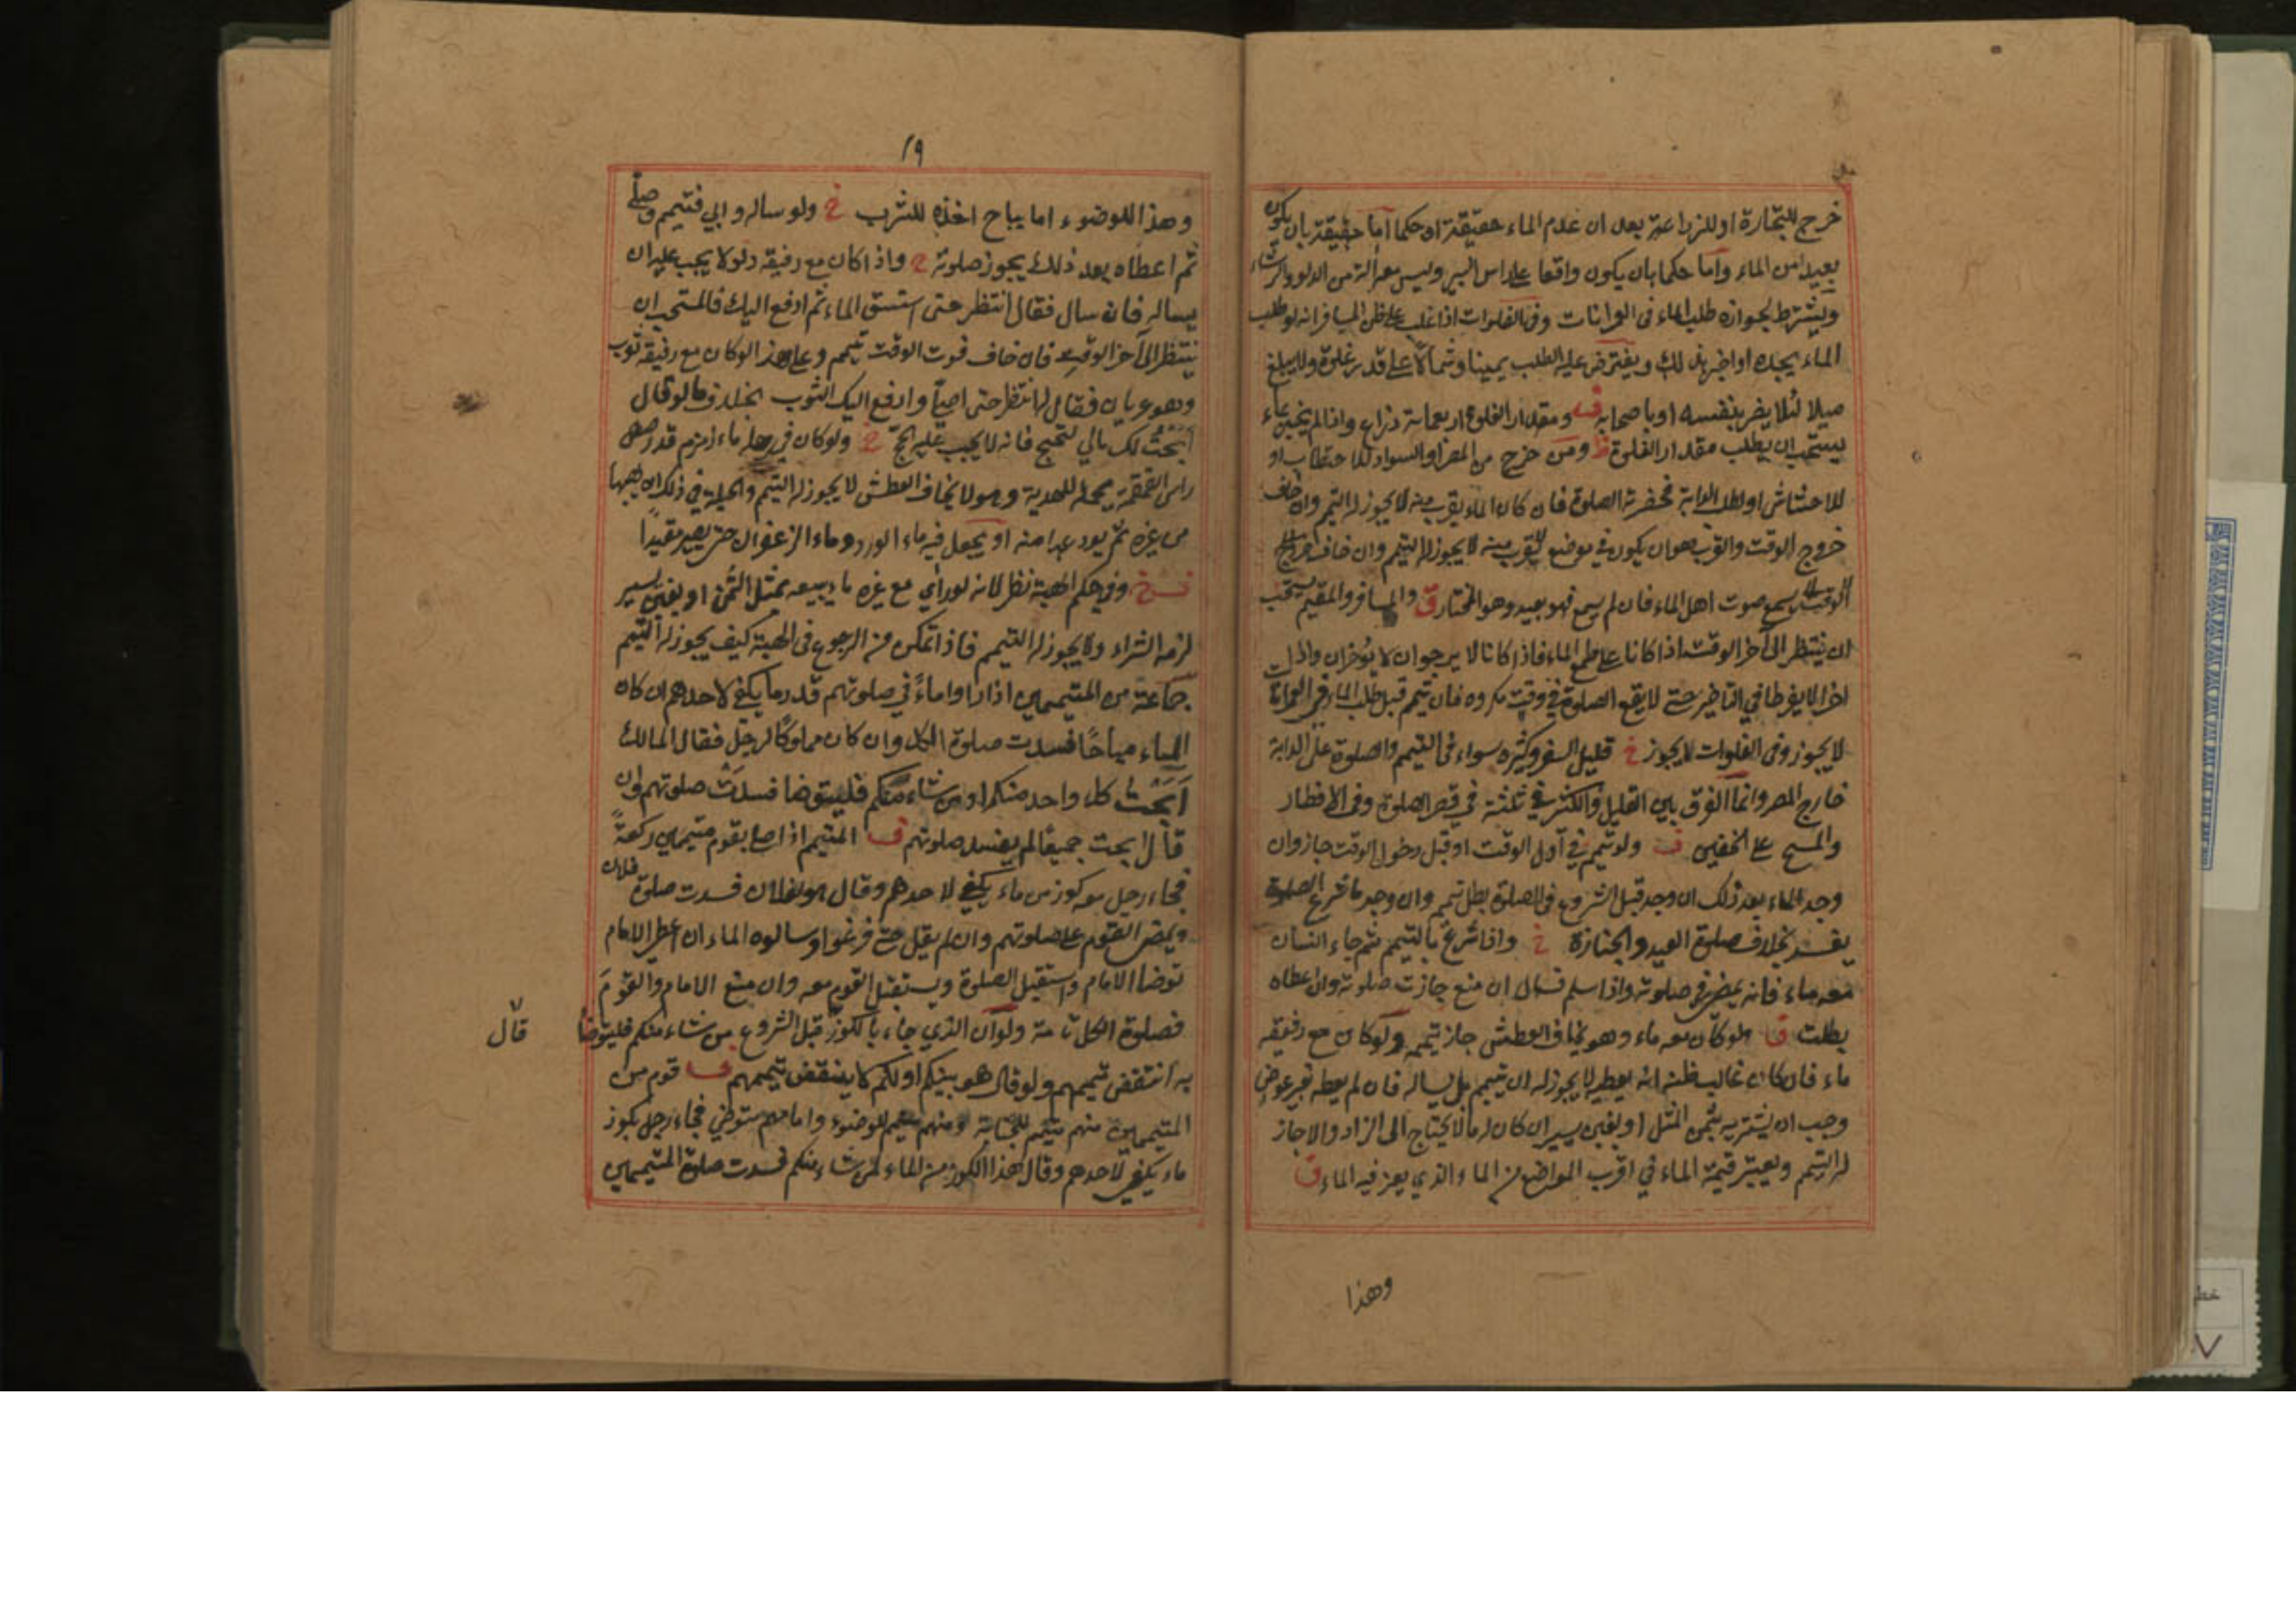 خرج للتجارة او للزراعة بعد ان عدم الماء حقيقة او حكما اما حقيقة بان يكون
بعيدا من الماء واما حكما بان يكون واقفا على راس البير وليس معه الة من الدلو والرشاء
ويشترط لجوازه طلب الماء فى العمرانات وفى الفلوات اذا غلب على ظن المسافر انه لو طلب
الماء يجده او اخبر بذلك ويفترض عليه الطلب يمينا وشمالا على قدر غلوة ولا يبلغ
ميلا لئلا يضر بنفسه او باصحابه ف ومقدار الغلوة اربعمائة ذراع واذا لم يخبر بماء
يستحب ان يطلب مقدار الغلوة ظ ومن خرج من المصر او السواد للاحتطاب او
للاحتشاش او لطلب الدابة فحضرته الصلوة فان كان الماء بقرب منه لا يجوز له التيمم وان خاف
خروج الوقت والقرب هو ان يكون في موضع القرب منه لا يجوز له التيمم وان خاف خروج
الوقت يسمع صوت اهل الماء فان لم يسمع فهو بعيد وهو المختار ق والمسافر والمقيم يستحب
ان ينتظر الى آخر الوقت اذا كانا على طمع الماء فاذا كانا لا يرجوان لا يؤخران واذا
اخرا لا يفرطا في التاخير حتى لا يقع الصلوة في وقت مكروه فان تيمم قبل طلب الماء فى العمرانات
لا يجوز وفى الفلوات لا يجوز خ قليل السفر وكثيره سواء فى التيمم والصلوة على الدابة
خارج المصر وانما الفرق بين القليل والكثير في ثلثة في قصر الصلوة وفى الافطار
والمسح على الخفين ف ولو تيمم في اول الوقت او قبل دخول الوقت جاز وان
وجد الماء بعد ذلك ان وجد قبل الشروع فى الصلوة بطل تيممه وان وجد ما شرع الصلوة
يفسد بخلاف صلوة العيد والجنازة خ واذا شرع بالتيمم ثم جاء انسان
معه ماء فانه يمضى في صلوته واذا سلم فسال ان منع جازت صلوته وان اعطاه
بطلت ق ولو كان معه ماء وهو يخاف العطش جاز تيممه ولو كان مع رفيقه
ماء فان كان غالب ظنه انه يعطيه لا يجوز له ان يتيمم بل يساله فان لم يعطه بغير عوض
وجب ان يشتريه بثمن المثل او بغبن يسير ان كان له مال لا يحتاج الى الزاد والا جاز
له التيمم ويعتبر قيمة الماء في اقرب المواضع من الماء الذي يعز فيه الماء ق
وهذا
١٩
وهذا للوضوء اما يباح اخذه للشرب خ ولو ساله وابي فتيمم وصلى
ثم اعطاه بعد ذلك يجوز صلوته خ واذا كان مع رفيقه دلو لا يجب عليه ان
يساله فان سال فقال انتظر حتى استسق الماء ثم ادفع اليك فالمستحب ان
ينتظر الى آخر الوقت فان خاف فوت الوقت تيمم وعلى هذا لو كان مع رفيقه ثوب
وهو عريان فقال له انتظر حتى اصلي وادفع اليك الثوب بخلاف ما لو قال
ابحت لك مالي لتحج فانه لا يجب عليه الحج خ ولو كان في رحله ماء زمزم قد رصص
راس القمقمة يحمله للهدية وهو لا يخاف العطش لا يجوز له التيمم والحيلة في ذلك ان يهبها
من غيره ثم يودعها منه او يجعل فيه ماء الورد وماء الزعفران حتى يصير مقيدا
وفي حكم الهبة نظر لانه لو راي مع غيره ما يبيعه بمثل الثمن او بغبن يسير
لزمه الشراء ولا يجوز له التيمم فاذا تمكن من الرجوع فى الهبة كيف يجوز له التيمم
جماعة من المتيممين اذا راوا ماء في صلوتهم قدر ما يكفي لاحدهم ان كان
الماء مباحا فسدت صلوة الكل وان كان مملوكا لرجل فقال المالك
ابحت كل واحد منكم او من شاء منكم فليتوضا فسدت صلوتهم وان
قال ابحت جميعا لم يفسد صلوتهم ف المتيمم اذا صلى بقوم متيممين ركعة
فجاء رجل معه كوز من ماء يكفي لاحدهم وقال هو لفلان فسدت صلوة فلان
ويمضي القوم على صلوتهم وان لم يقل حتى فرغوا وسالوه الماء ان اعطى الامام
توضا الامام واستقبل الصلوة ويستقبل القوم معه وان منع الامام والقوم
فصلوة الكل تامة ولو ان الذي جاء بالكوز قبل الشروع من شاء منكم فليتوضا
قال
به انتقض تيممهم ولو قال هو بينكم او لكم لا ينتقض تيممهم ف قوم من
المتيممين منهم متيمم للجنابة ومنهم متيمم للوضوء وامامهم متوضي فجاء رجل بكوز
ماء يكفي لاحدهم وقال هذا الكوز من الماء لمن شاء منكم فسدت صلوة المتيممين